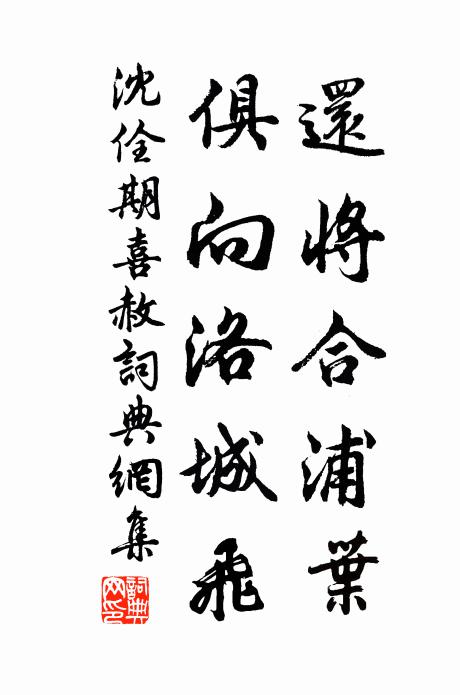 還將合浦葉
俱向洛城飛
沈佺期喜赦詞典網集
詞典网印